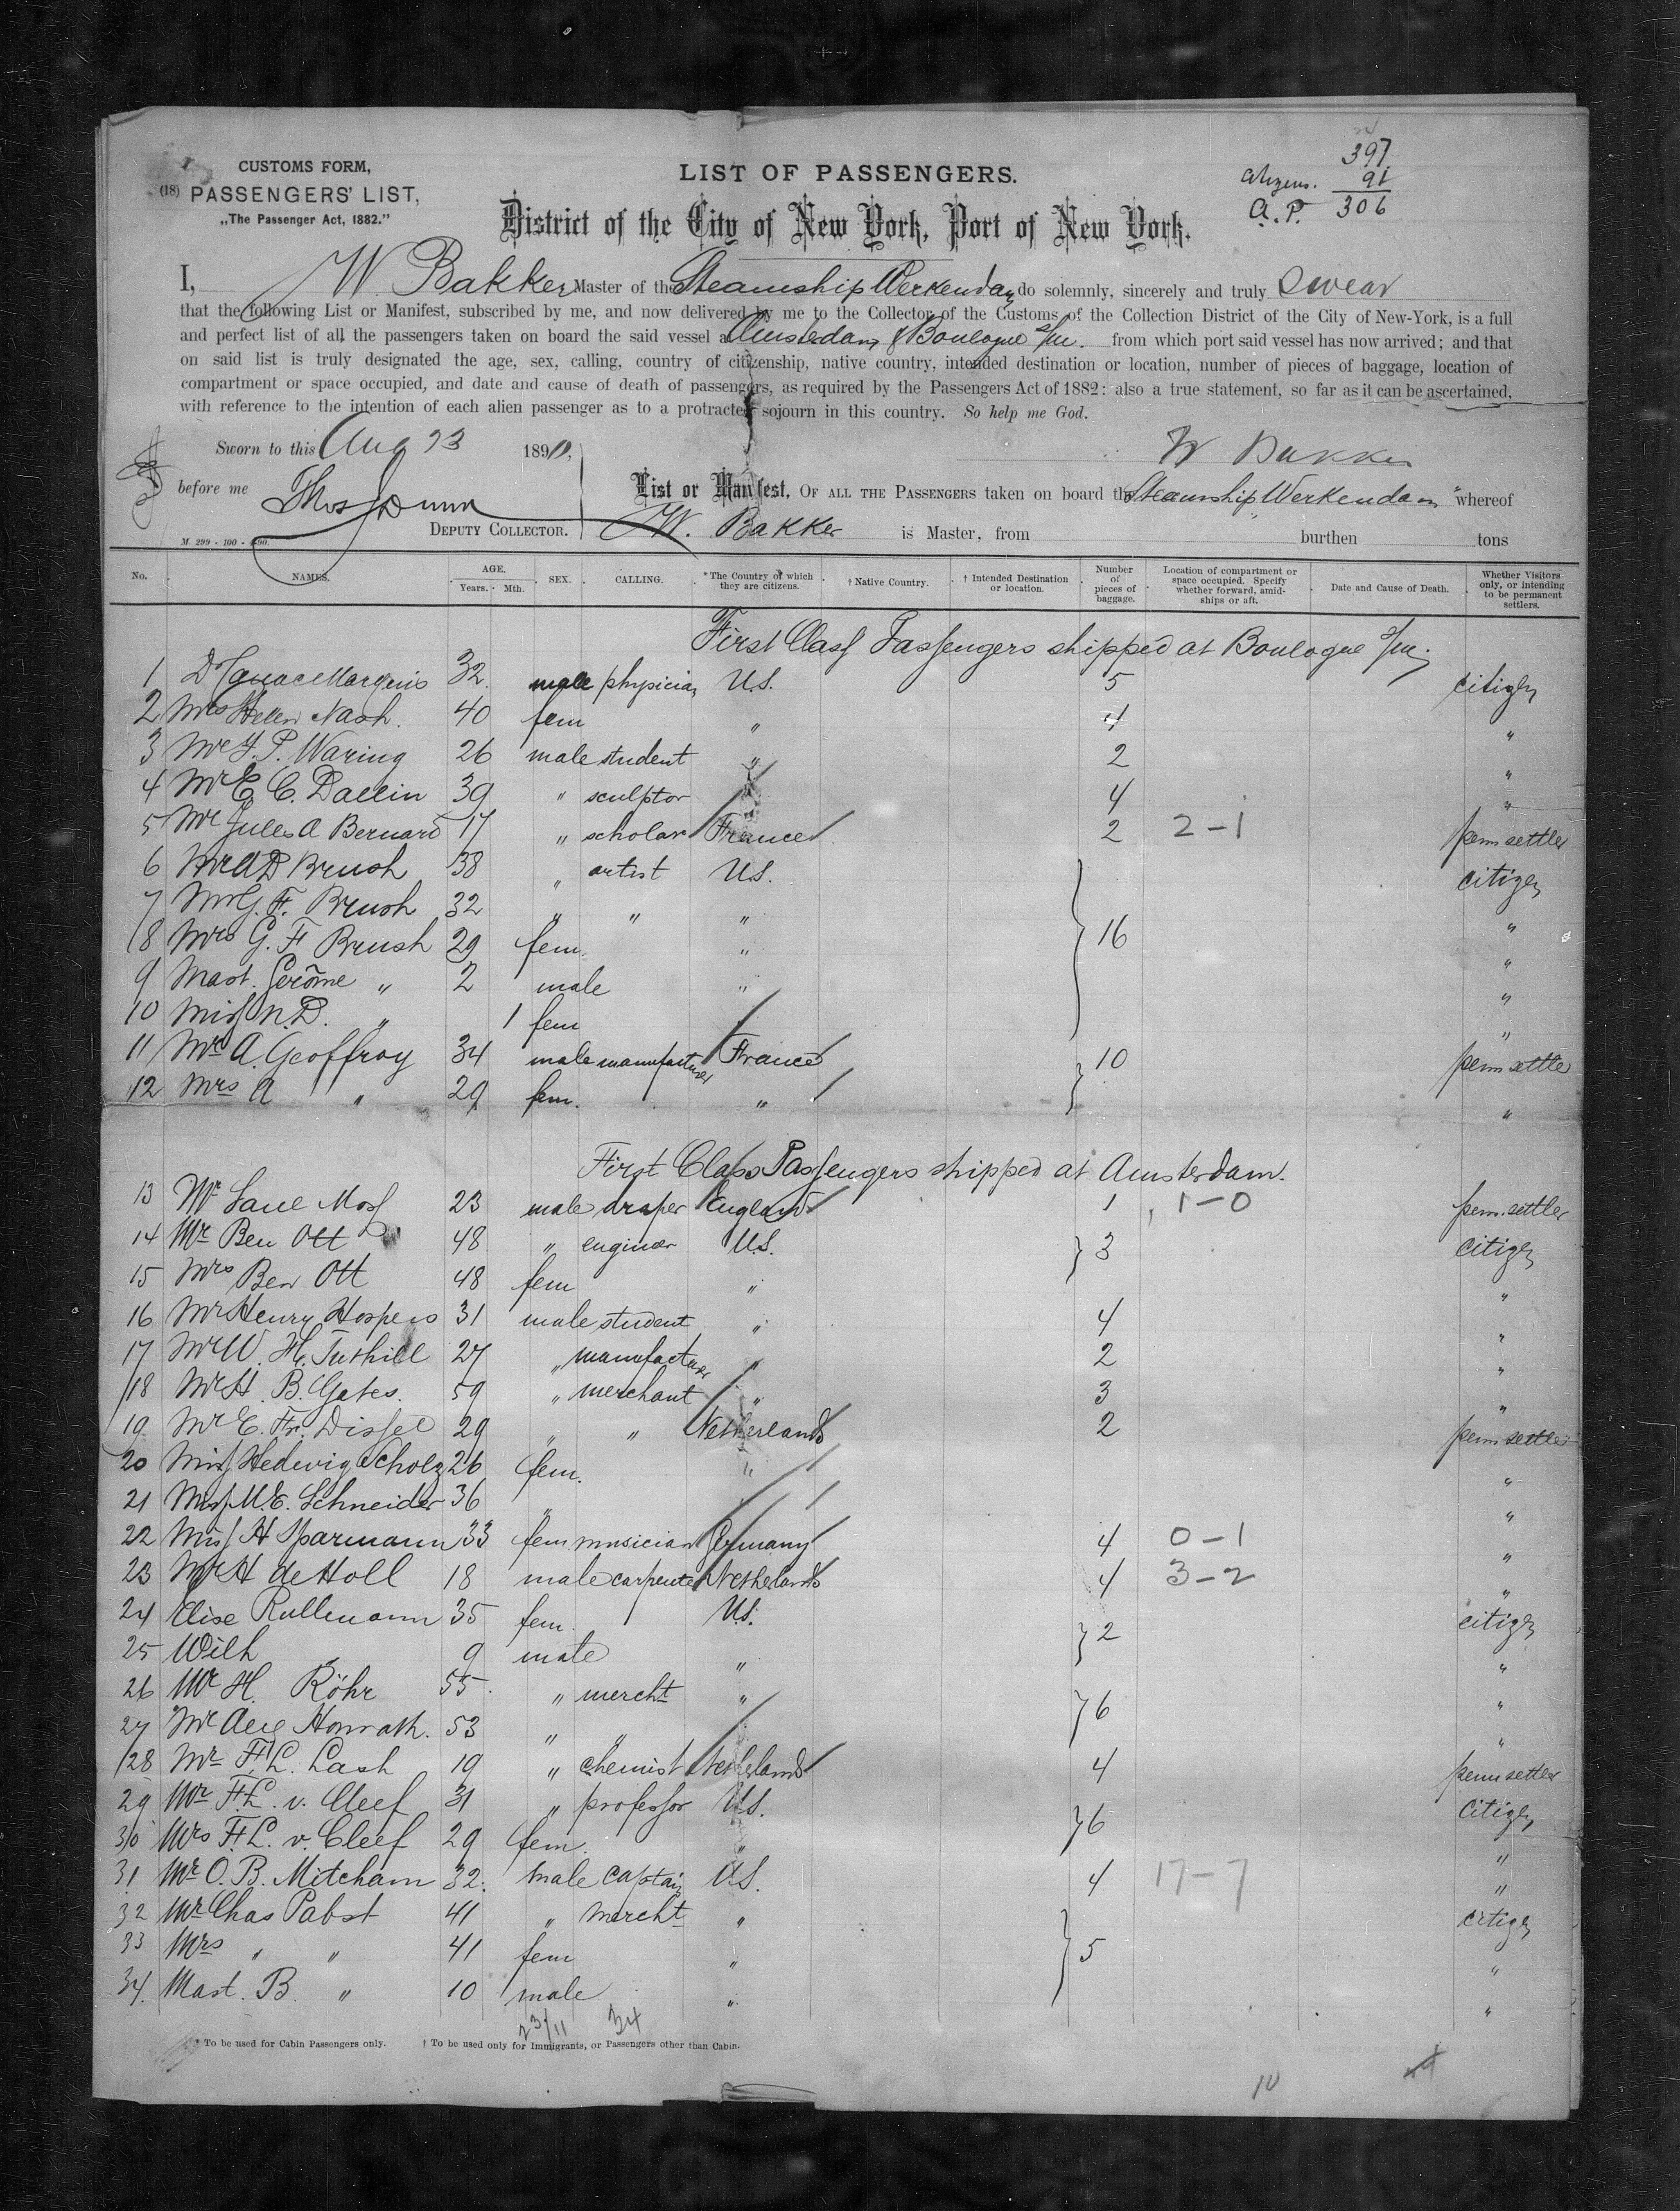 CUSTOMS FORM,
(18) PASSENGERS' LIST,
„The Passenger Act, 1882."
LIST OF PASSENGERS.
District of the City of New York, Port of New York.
397
citizens. 91
A.P. 306
I, W. Bakker Master of the Steamship Werkendam do solemnly, sincerely and truly swear
that the following List or Manifest, subscribed by me, and now delivered by me to the Collector of the Customs of the Collection District of the City of New-York, is a full
and perfect list of all the passengers taken on board the said vessel at Amsterdam & Boulogne s/m. from which port said vessel has now arrived; and that
on said list is truly designated the age, sex, calling, country of citizenship, native country, intended destination or location, number of pieces of baggage, location of
compartment or space occupied, and date and cause of death of passengers, as required by the Passengers Act of 1882: also a true statement, so far as it can be ascertained,
with reference to the intention of each alien passenger as to a protracted sojourn in this country. So help me God.
Sworn to this Aug 23 1890,
W Bakker
before me Thos J Dunn
DEPUTY COLLECTOR.
List or Manifest, OF ALL THE PASSENGERS taken on board the Steamship Werkendam whereof
W. Bakker is Master, from burthen tons
M. 299 - 100 - 4-90.
No. NAMES. AGE. Years. Mth. SEX. CALLING. *The Country of which they are citizens. † Native Country. † Intended Destination or location. Number of pieces of baggage. Location of compartment or space occupied. Specify whether forward, amidships or aft. Date and Cause of Death. Whether Visitors only, or intending to be permanent settlers.
First Class Passengers shipped at Boulogne s/m.
1 Dr Marquis 32. male physician U.S. 5 citizen
2 Mrs Helen Nash. 40 fem " 4 "
3 Mr J. P. Waring 26 male student " 2 "
4 Mr C. C. Dallin 39 " sculptor " 4 "
5 Mr Jules A Bernard 17 " scholar France 2 2-1 perm settler
6 Mr A D Brush 38 " artist U.S. citizen
7 Mr G. F. Brush 32 " " " "
8 Mrs G. F Brush 29 fem. " 16 "
9 Mast. Gerôme " 2 male " "
10 Miss N. D. " 1 fem "
11 Mr A. Geoffroy 34 male manufacturer France 10 perm settler
12 Mrs A " 29 fem. " "
First Class Passengers shipped at Amsterdam.
13 Mr Saul Moss 23 male draper England 1 1-0 perm. settler
14 Mr Ben Ott 48 " engineer U.S. 3 citizen
15 Mrs Ben Ott 48 fem " "
16 Mr Henry Hospers 31 male student " 4 "
17 Mr W. H. Tuthill 27 " manufacturer " 2 "
18 Mr H. B. Gates. 59 " merchant " 3 "
19. Mr E. Fr. Dissel 29 " " Netherlands 2 perm settler
20 Miss Hedewig Scholz 26 fem. " "
21 Miss M. E. Schneider 36 " "
22 Miss H Sparmann 33 fem musician Germany 4 0-1 "
23 Mr H de Holl 18 male carpenter Netherlands 4 3-2 "
24 Elise Rullmann 35 fem. U.S. 2 citizen
25 Wilh " 9 male " "
26 Mr H. Röhr 55. " mercht " 6 "
27 Mr Aug Honrath. 53 " " "
28 Mr F. L. Lash 19 " chemist Netherlands 4 perm settler
29 Mr F. L. v. Cleef 31 " professor U.S. 6 citizen
30 Mrs F. L. v. Cleef 29 fem. " "
31 Mr O. B. Mitcham 32. male captain U.S. 4 17-7 "
32 Mr Chas Pabst 41 " mercht " citizen
33 Mrs " " 41 fem " 5 "
34. Mast. B. " 10 male " "
23/11 34
* To be used for Cabin Passengers only. † To be used only for Immigrants, or Passengers other than Cabin.
10